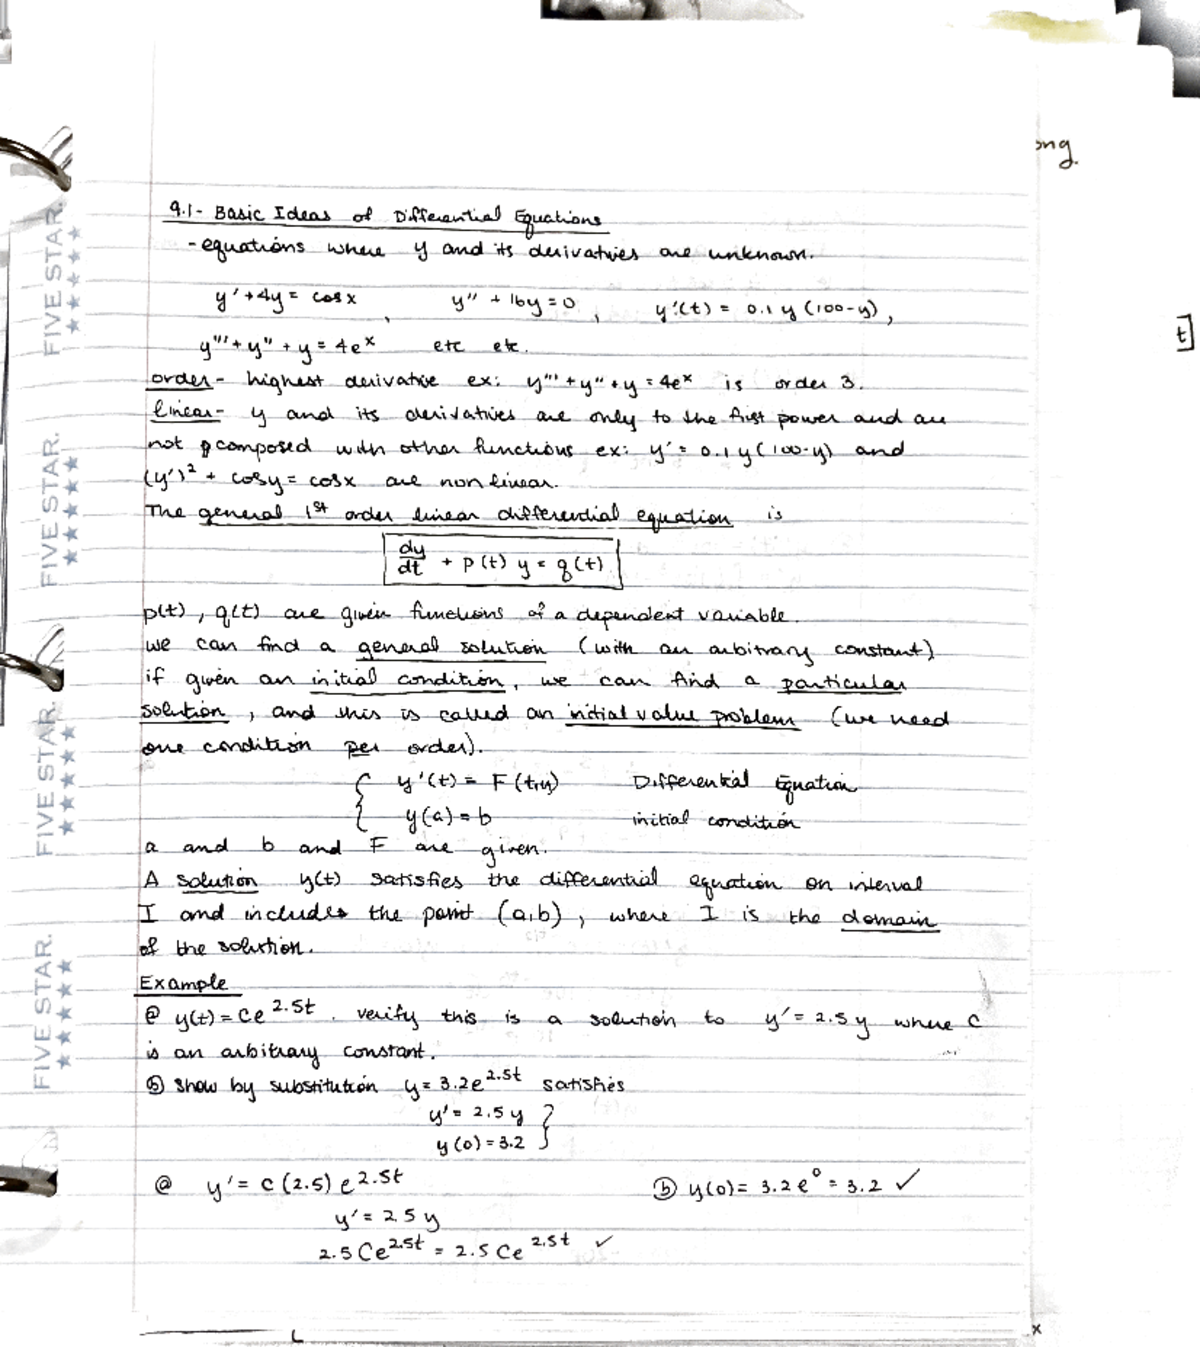 ong.
9.1- Basic Ideas of Differential Equations
- equations where y and its derivatives are unknown.
y' + 4y = cosx , y'' + 16y = 0 , y'(t) = 0.1 y (100-y) ,
t]
y''' + y'' + y = 4eˣ etc etc.
order - highest derivative ex: y''' + y'' + y = 4eˣ is order 3.
linear - y and its derivatives are only to the first power and are
not composed with other functions ex: y' = 0.1 y (100-y) and
(y')² + cosy = cosx are non linear.
The general 1st order linear differential equation is
dy/dt + p(t) y = q(t)
p(t), q(t) are given functions of a dependent variable.
we can find a general solution (with an arbitrary constant)
if given an initial condition, we can find a particular
solution, and this is called an initial value problem (we need
one condition per order).
{ y'(t) = F(t,y) Differential Equation
y(a) = b initial condition
a and b and F are given.
A solution y(t) satisfies the differential equation on interval
I and includes the point (a,b), where I is the domain
of the solution.
Example
ⓐ y(t) = Ce^2.5t . verify this is a solution to y' = 2.5y where C
is an arbitrary constant.
ⓑ Show by substitution y = 3.2e^2.5t satisfies
y' = 2.5 y }
y(0) = 3.2
ⓐ y' = C (2.5) e^2.5t ⓑ y(0) = 3.2e⁰ = 3.2 ✓
y' = 2.5 y
2.5 Ce^2.5t = 2.5 Ce^2.5t ✓
FIVE STAR.
FIVE STAR.
FIVE STAR.
FIVE STAR.